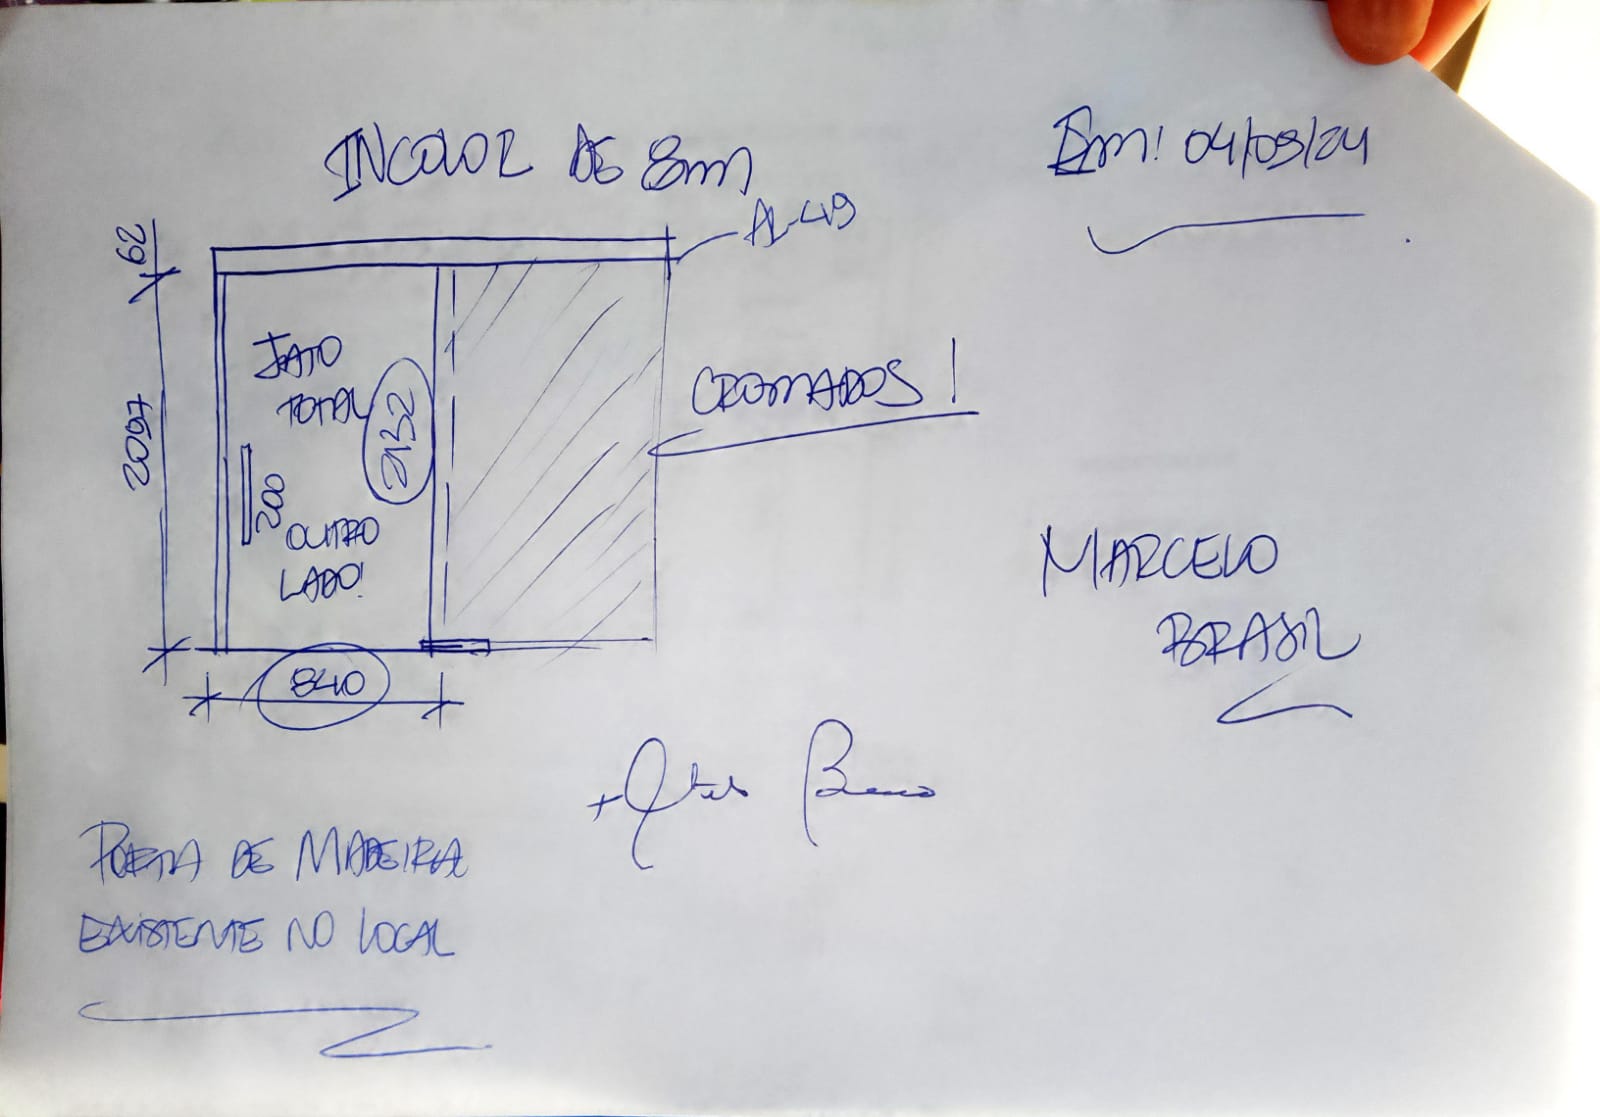 INCOLOR DE 8mm
Em! 04/09/24
62
AL-49
JATO
TOTAL
2132
2097
CROMADOS!
200
OUTRO
LADO!
840
MARCELO
BRASIL
PORTA DE MADEIRA
EXISTENTE NO LOCAL